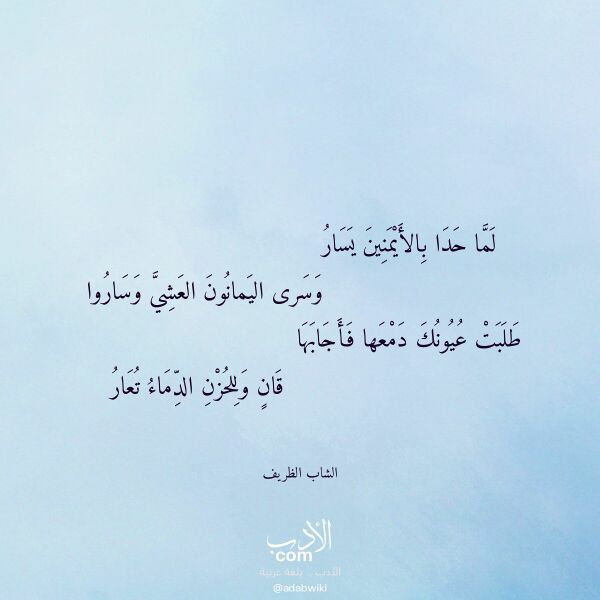 لَمَّا حَدَا بِالأَيْمَنِينَ يَسَارُ
وَسَرى اليَمانُونَ العَشِيَّ وَسَارُوا
طَلَبَتْ عُيُونُكَ دَمْعَها فَأَجَابَهَا
قَانٍ وَلِلحُزْنِ الدِّمَاءُ تُعَارُ
الشاب الظريف
الأدب
com
الأدب .. بلغة عربية
@adabwiki